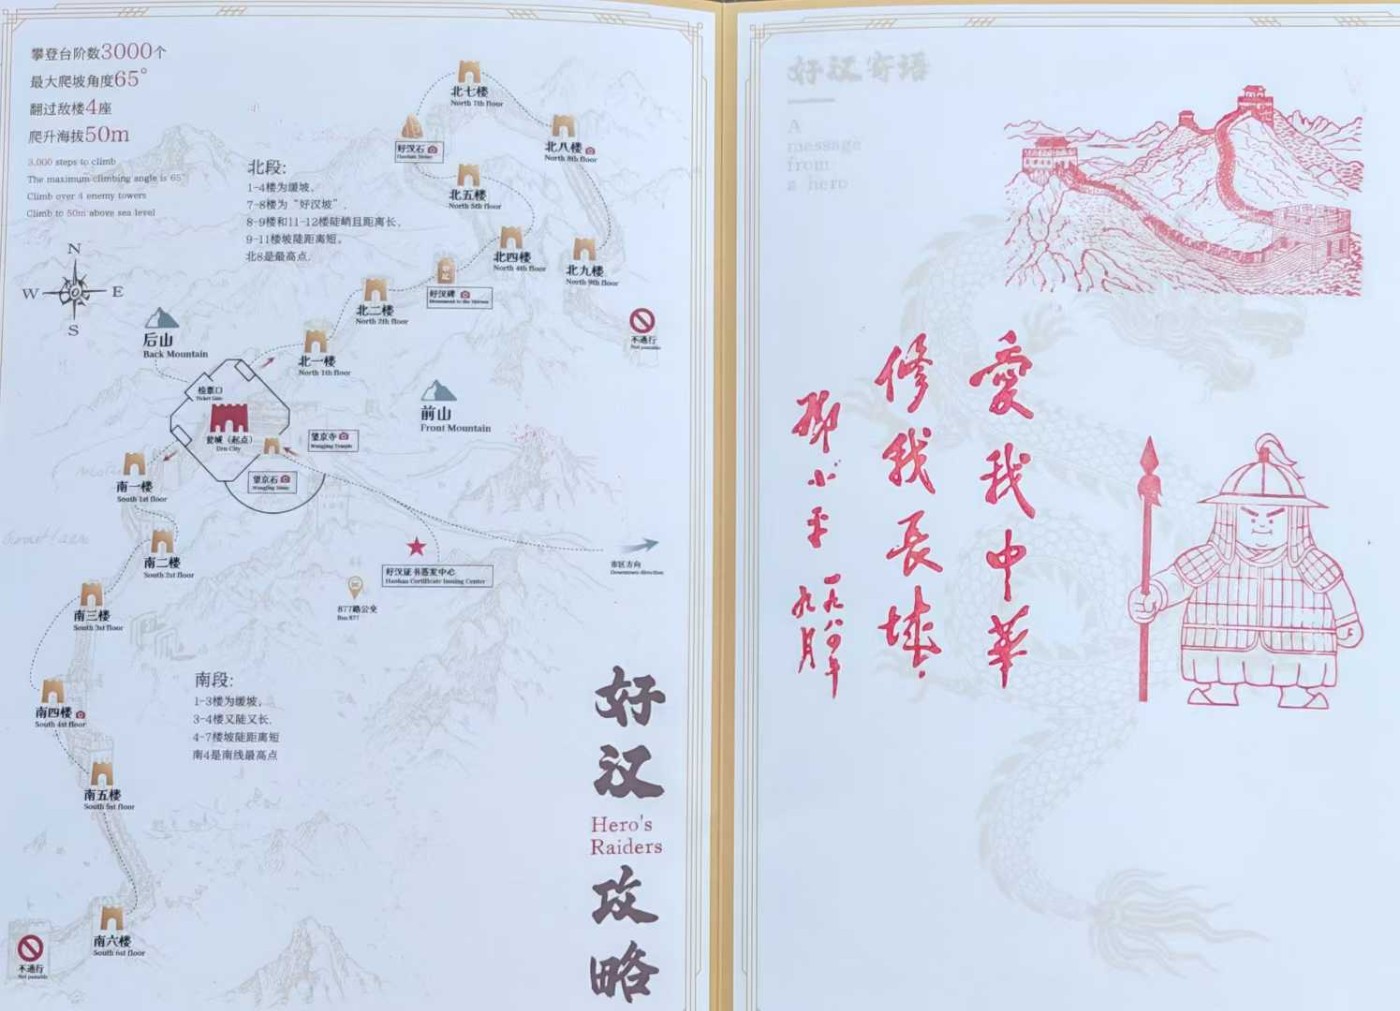 攀登台阶数3000个
最大爬坡角度65°
翻过敌楼4座
爬升海拔50m
3,000 steps to climb
The maximum climbing angle is 65°
Climb over 4 enemy towers
Climb to 50m above sea level
N
W
E
S
北段:
1-4楼为缓坡,
7-8楼为“好汉坡”,
8-9楼和11-12楼陡峭且距离长,
9-11楼坡陡距离短,
北8是最高点.
北七楼
North 7th floor
北八楼
North 8th floor
好汉石
北五楼
North 5th floor
北四楼
North 4th floor
北九楼
North 9th floor
好汉碑
北二楼
North 2th floor
北一楼
North 1th floor
不通行
Not passable
后山
Back Mountain
前山
Front Mountain
检票口
Ticket Gate
瓮城（起点）
Urn City
望京寺
Wangjing Temple
望京石
Wangjing Stone
南一楼
South 1st floor
南二楼
South 2st floor
南三楼
South 3st floor
南四楼
South 4st floor
南五楼
South 5st floor
南六楼
South 6st floor
不通行
Not passable
好汉证书签发中心
Haohan Certificate Issuing Center
877路公交
Bus 877
市区方向
Downtown direction
南段:
1-3楼为缓坡,
3-4楼又陡又长.
4-7楼坡陡距离短
南4是南线最高点
好汉
Hero's
Raiders
攻略
好汉寄语
A
message
from
a hero
愛我中華
修我長城
邓小平
一九八四年
九月